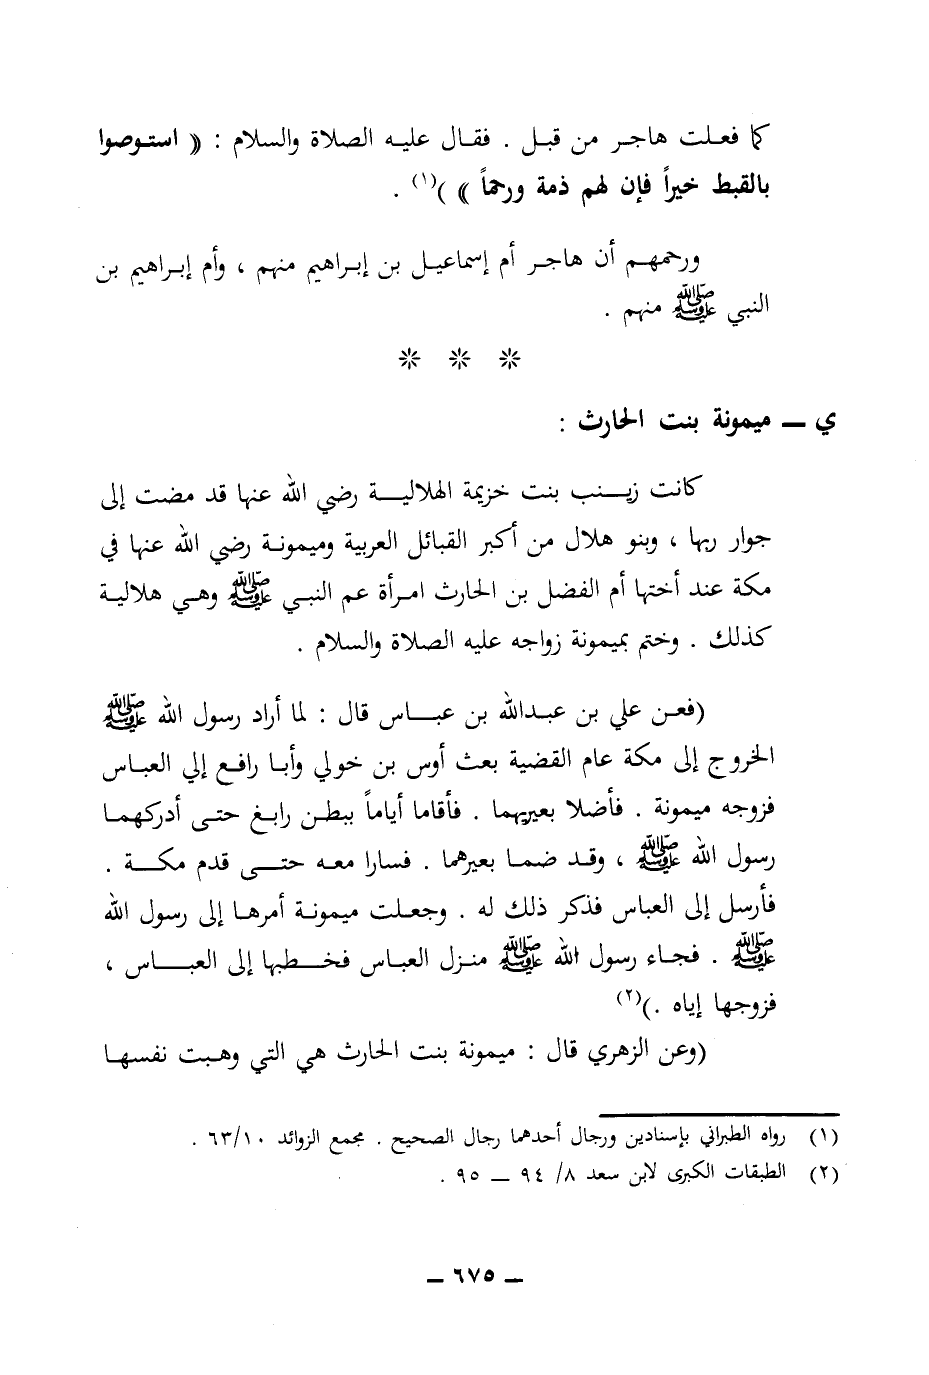 كما فعلت هاجر من قبل . فقال عليه الصلاة والسلام : « استوصوا
بالقبط خيراً فإن لهم ذمة ورحماً » )(١) .
ورحمهم أن هاجر أم إسماعيل بن إبراهيم منهم ، وأم إبراهيم بن
النبي ﷺ منهم .
* * *
ي ــ ميمونة بنت الحارث :
كانت زينب بنت خزيمة الهلالية رضي الله عنها قد مضت إلى
جوار ربها ، وبنو هلال من أكبر القبائل العربية وميمونة رضي الله عنها في
مكة عند أختها أم الفضل بن الحارث امرأة عم النبي ﷺ وهي هلالية
كذلك . وختم بميمونة زواجه عليه الصلاة والسلام .
(فعن علي بن عبدالله بن عباس قال : لما أراد رسول الله ﷺ
الخروج إلى مكة عام القضية بعث أوس بن خولي وأبا رافع إلي العباس
فزوجه ميمونة . فأضلا بعيريهما . فأقاما أياماً ببطن رابغ حتى أدركهما
رسول الله ﷺ ، وقد ضما بعيرهما . فسارا معه حتى قدم مكة .
فأرسل إلى العباس فذكر ذلك له . وجعلت ميمونة أمرها إلى رسول الله
ﷺ . فجاء رسول الله ﷺ منزل العباس فخطبها إلى العباس ،
فزوجها إياه .)(٢)
(وعن الزهري قال : ميمونة بنت الحارث هي التي وهبت نفسها
(١) رواه الطبراني بإسنادين ورجال أحدهما رجال الصحيح . مجمع الزوائد ٦٣/١٠ .
(٢) الطبقات الكبرى لابن سعد ٨/ ٩٤ ــ ٩٥ .
ــ ٦٧٥ ــ